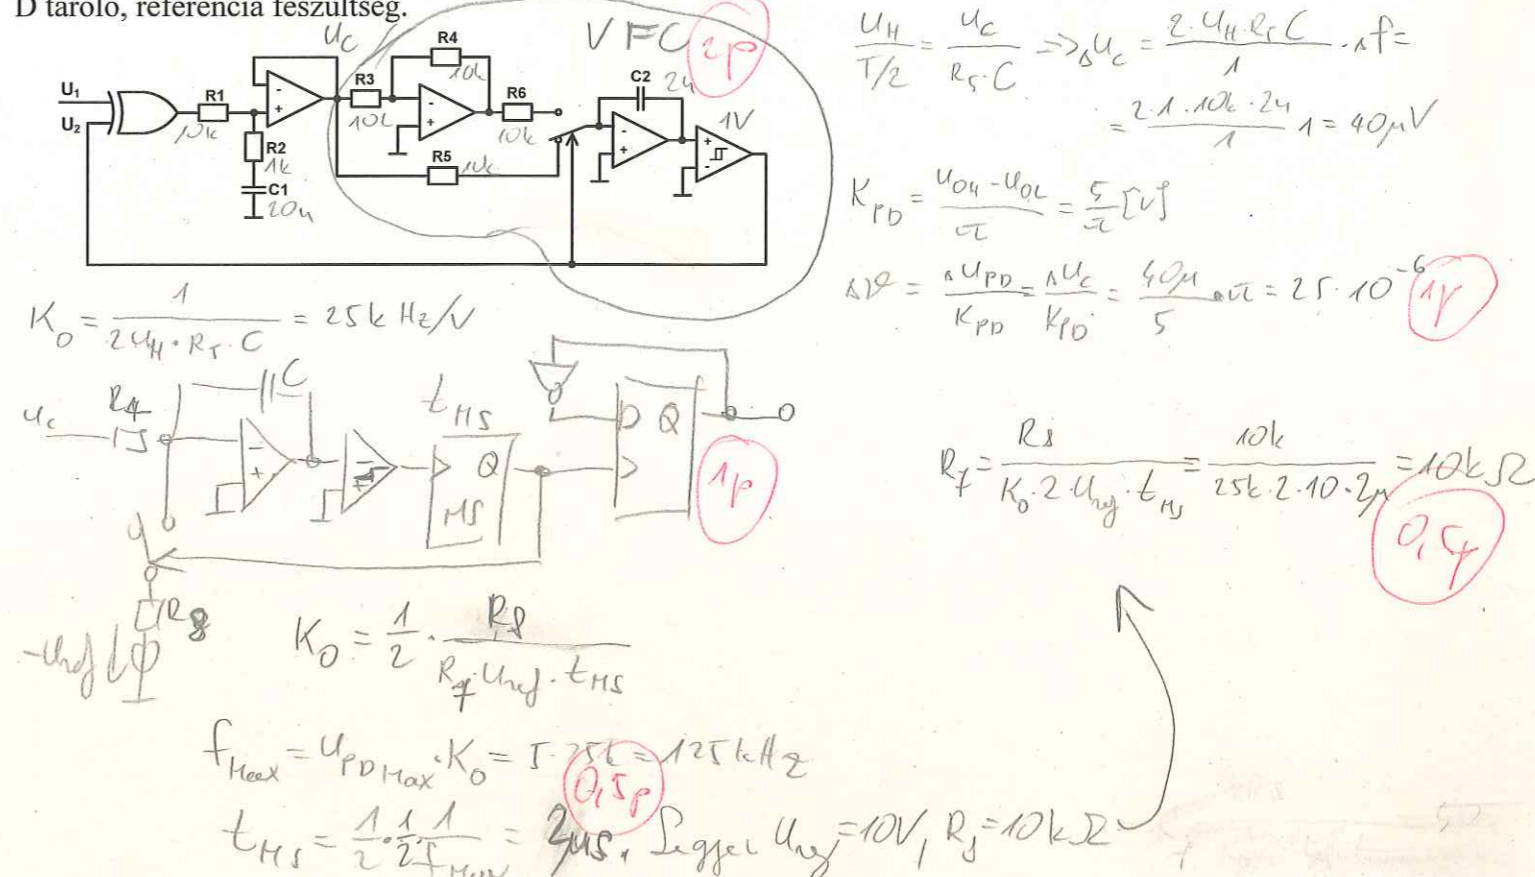 D tároló, referencia feszültség.
U_C
VFC 2p
R4
10k
R3
10k
R6
10k
C2
2n
1V
U₁
U₂
R1
10k
R2
1k
C1
20n
R5
10k
U_H/(T/2) = U_C/(R5·C) => ΔU_C = (2·U_H·R5·C)/1 · Δf =
= (2·1·10k·2n)/1 · 1 = 40μV
K_PD = (U_OH - U_OL)/π = 5/π [V]
Δϑ = ΔU_PD/K_PD = ΔU_C/K_PD = 40μ/5 · π = 25·10⁻⁶ 1p
K_0 = 1/(2U_H·R5·C) = 25k Hz/V
U_C
R7
C
t_MS
Q
MS
D Q
1p
R8
-Uref
R7 = R8/(K_0·2·Uref·t_MS) = 10k/(25k·2·10·2μ) = 10kΩ
0,5p
K_0 = 1/2 · R8/(R7·Uref·t_MS)
f_Max = U_PDMax·K_0 = 5·25k = 125kHz
0,5p
t_MS = 1/2·1/2·1/f_Max = 2μs. Legyen Uref = 10V, R8 = 10kΩ